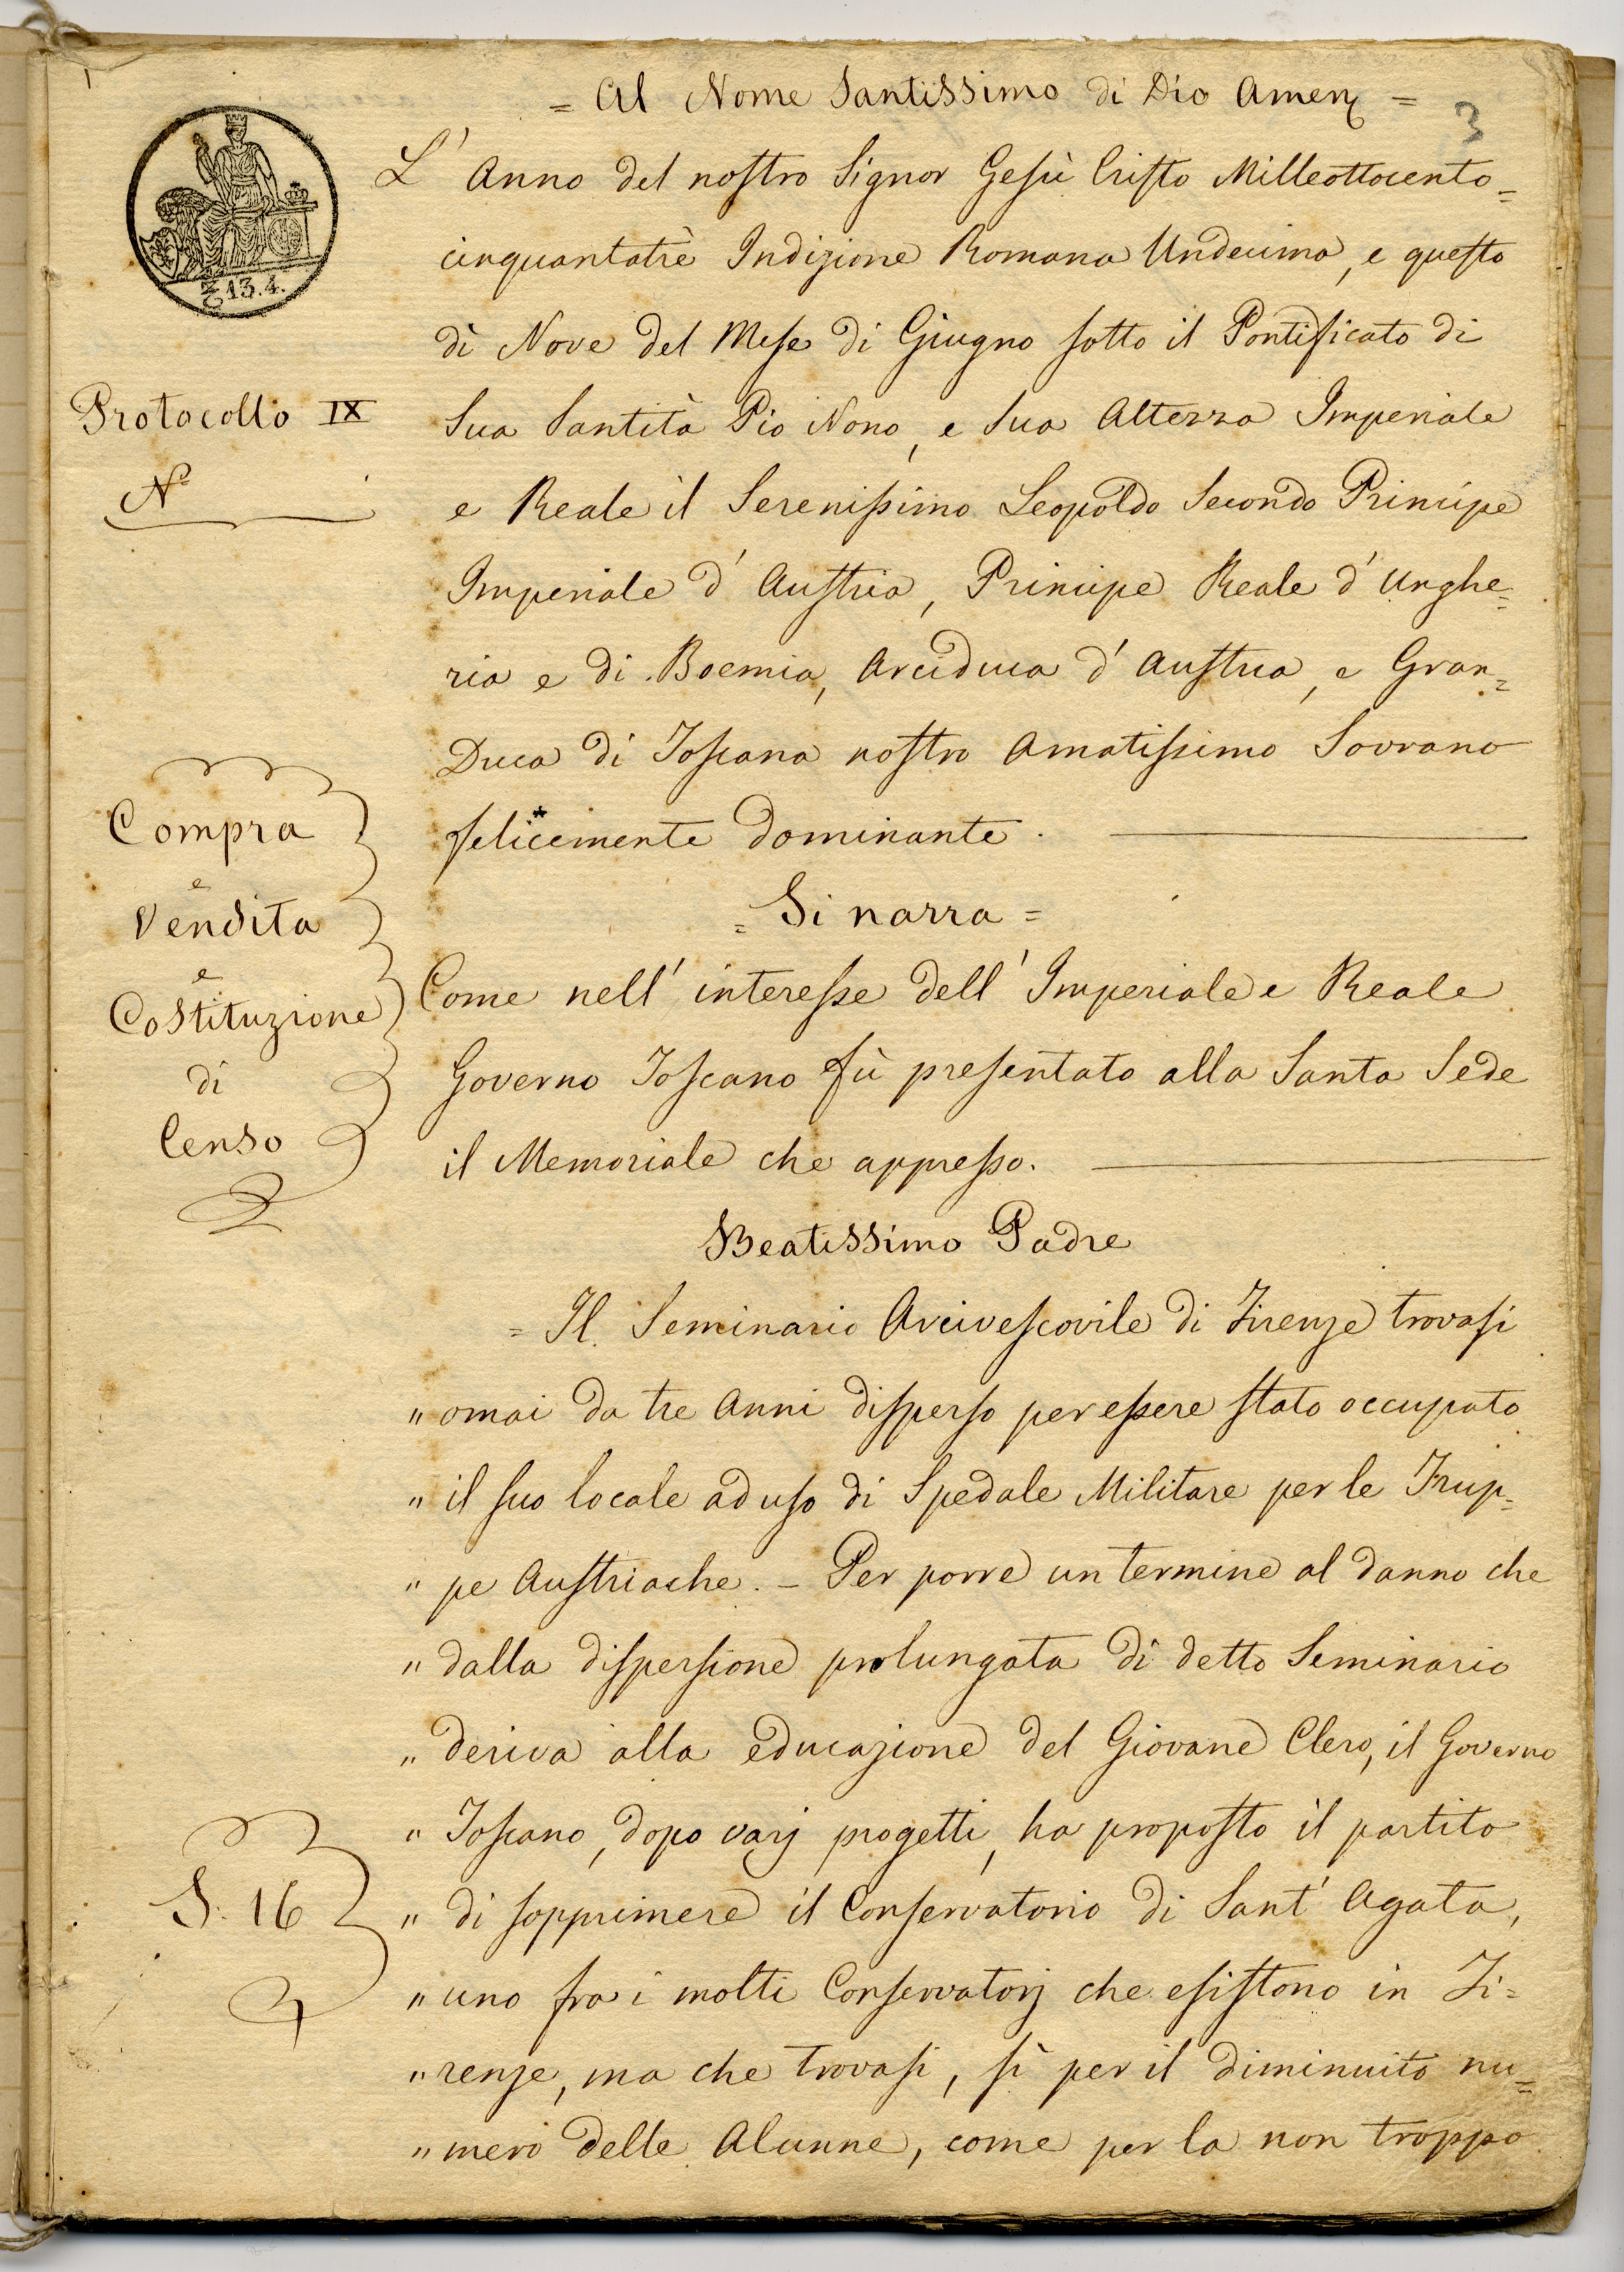 = Al Nome Santissimo di Dio Amen =
3
L' Anno del nostro Signor Gesù Cristo Milleottocento=
cinquantatrè Indizione Romana Undecima, e questo
dì Nove del Mese di Giugno sotto il Pontificato di
Sua Santità Pio Nono, e Sua Altezza Imperiale
e Reale il Serenissimo Leopoldo Secondo Principe
Imperiale d' Austria, Principe Reale d' Unghe=
ria e di Boemia, Arciduca d' Austria, e Gran=
Duca di Toscana nostro Amatissimo Sovrano
felicemente dominante.
= Si narra =
Come nell' interesse dell' Imperiale e Reale
Governo Toscano fù presentato alla Santa Sede
il Memoriale che appresso.
Beatissimo Padre
= Il Seminario Arcivescovile di Firenze trovasi
" omai da tre Anni disperso per essere stato occupato
" il suo locale ad uso di Spedale Militare per le Trup=
" pe Austriache. – Per porre un termine al danno che
" dalla dispersione prolungata di detto Seminario
" deriva alla educazione del Giovane Clero, il Governo
" Toscano, dopo varj progetti, ha proposto il partito
" di sopprimere il Conservatorio di Sant' Agata,
" uno fra i molti Conservatorj che esistono in Fi=
" renze, ma che trovasi, sì per il diminuito nu=
" mero delle Alunne, come per la non troppo
13.4.
Protocollo IX
N°
Compra
e
Vendita
e
Costituzione
di
Censo
S. 16